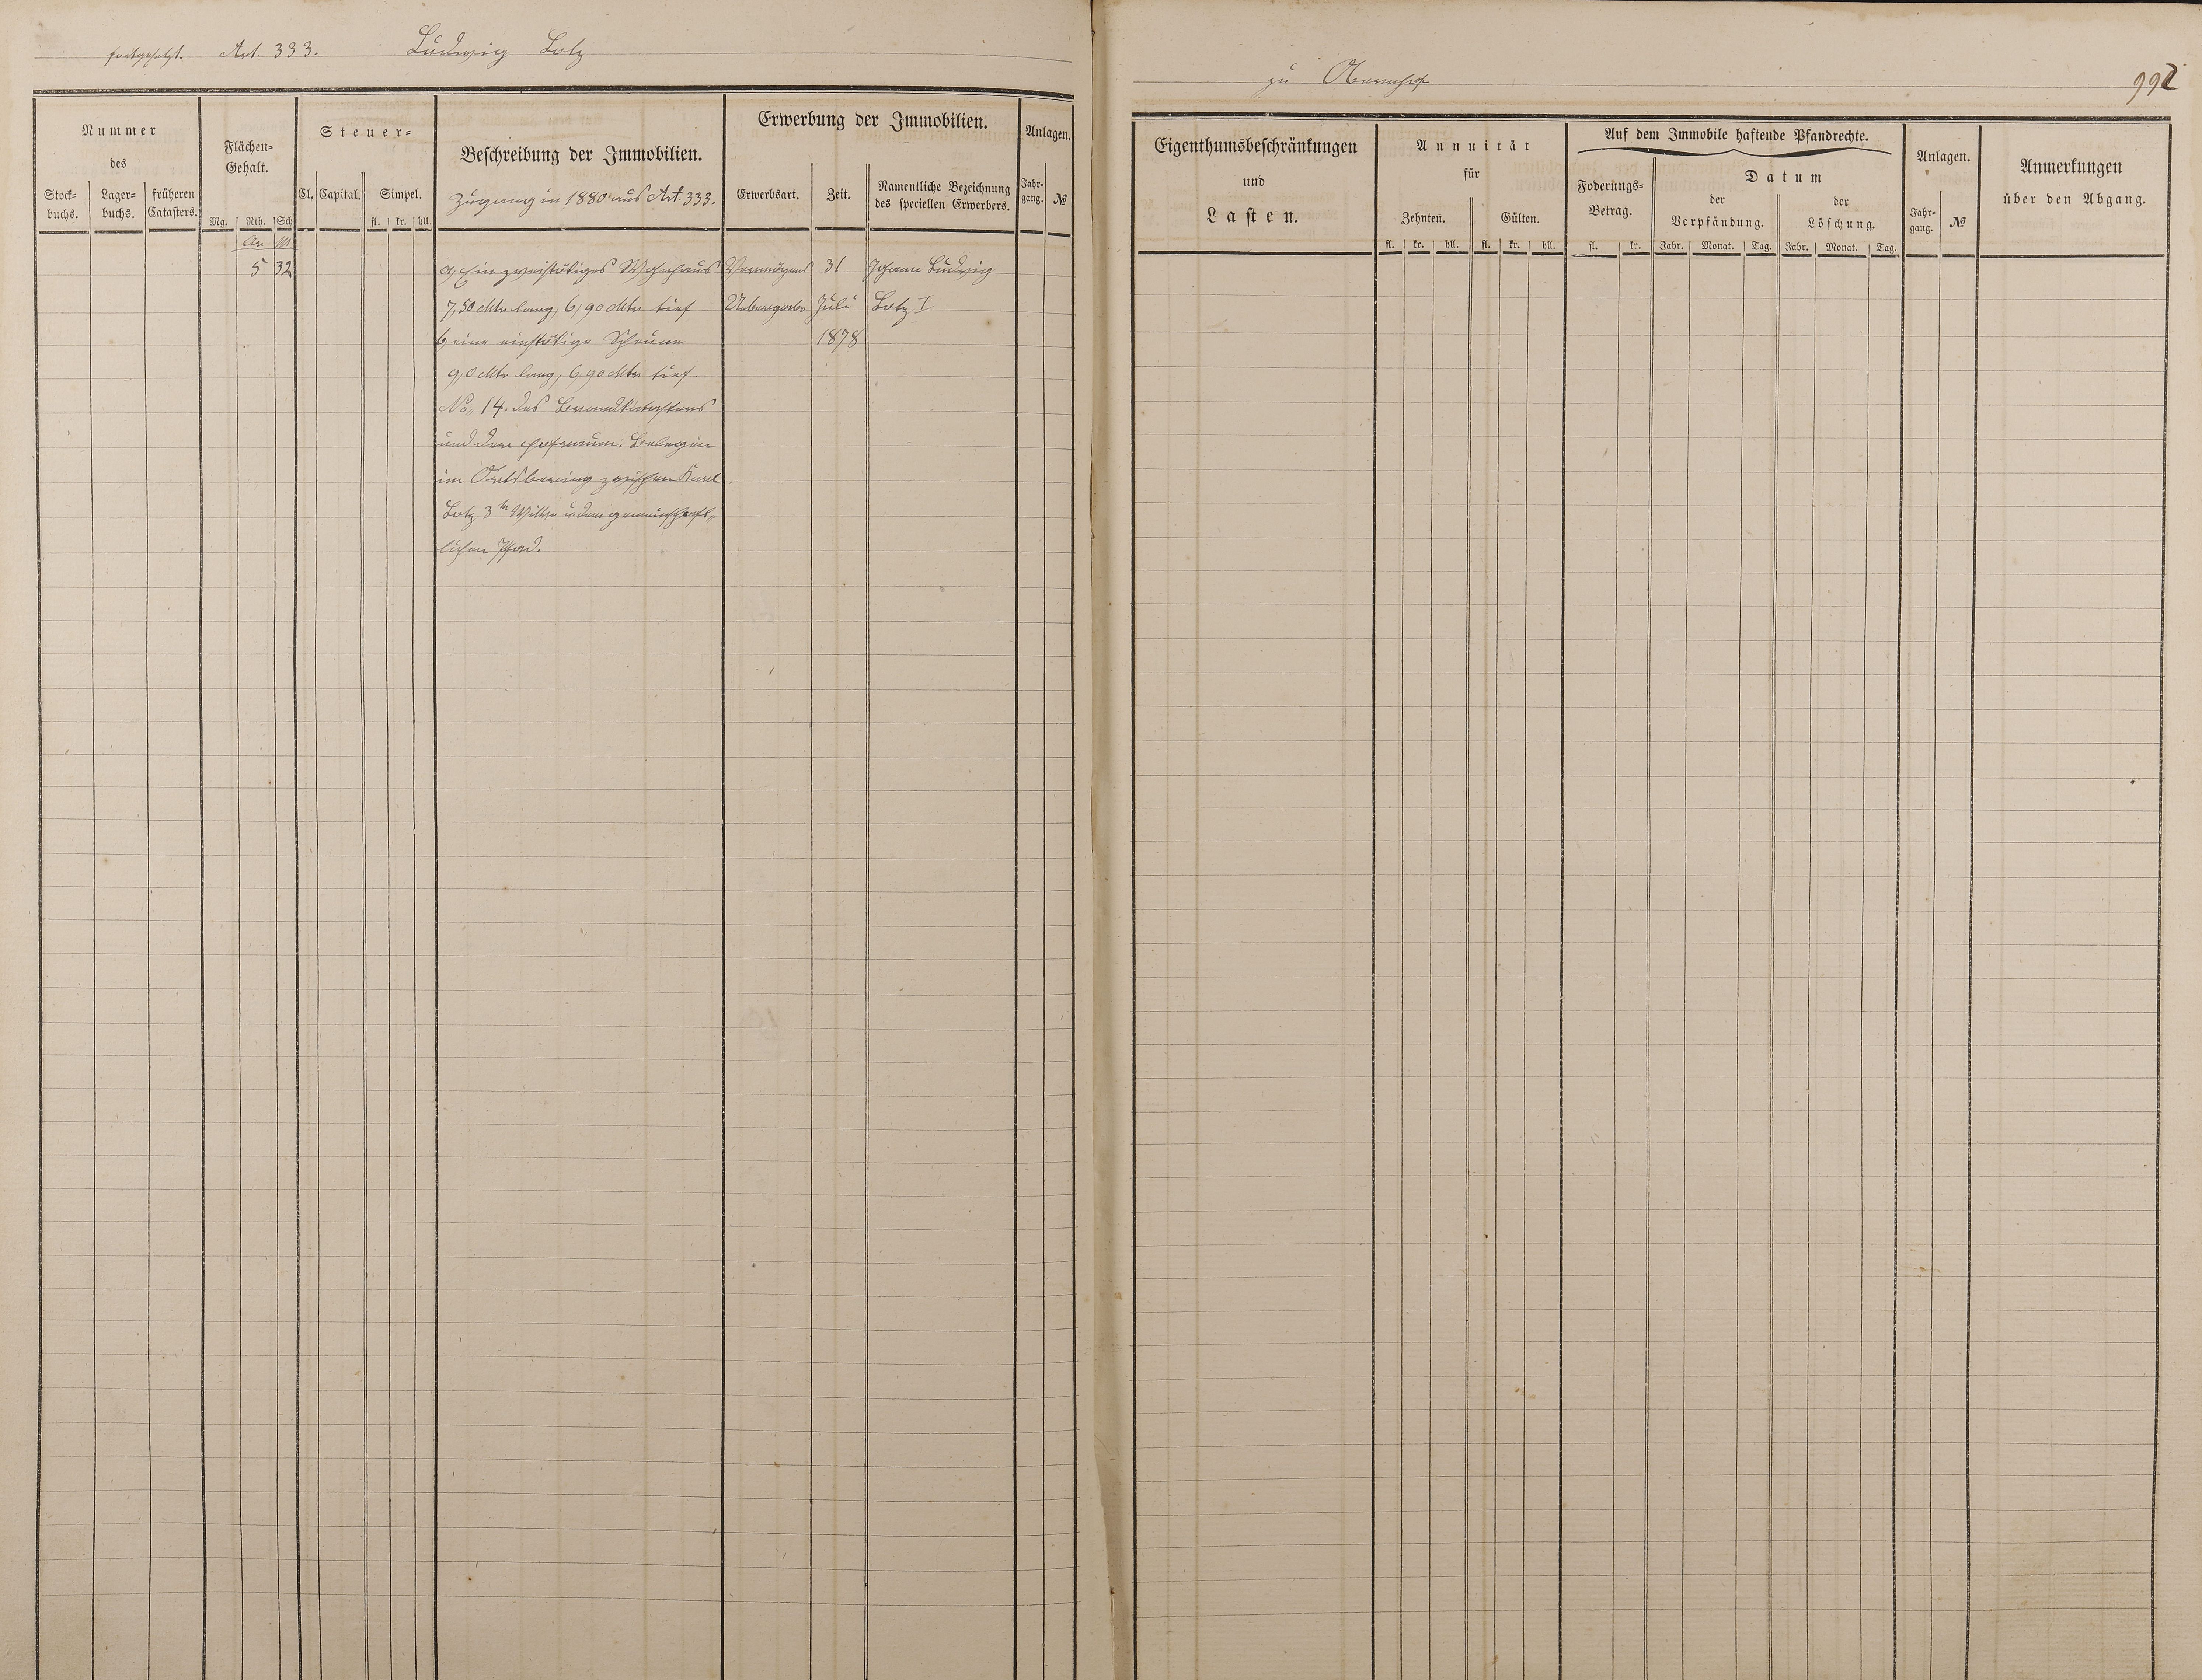 fortgesetzt. Art. 333. Ludwig Lotz
zu Obernhof 992
Nummer
des
Stock-
buchs.
Lager-
buchs.
früheren
Catasters.
Flächen-
Gehalt.
Mg. Rtb. Sch
Steuer-
Cl. Capital. Simpel.
fl. kr. bll.
Beschreibung der Immobilien.
Zugang in 1880 aus Art. 333.
Erwerbung der Immobilien.
Erwerbsart. Zeit.
Namentliche Bezeichnung
des speciellen Erwerbers.
Anlagen.
Jahr-
gang. №
Ar M
5 32 a, Ein zweistökiges Wohnhaus Vermögens 31 Johann Ludwig
7,50 Mtr lang, 6,90 Mtr tief Uebergabe Juli Lotz I
b, eine einstökige Scheune 1878
9,0 Mtr lang, 6,90 Mtr tief
No. 14. des Brandkatasters
und der Hofraum. Belegen
im Ortsbering zwischen Karl
Lotz 3tr Witwe u dem gemeinschaft-
lichen Pfad.
Eigenthumsbeschränkungen
und
Lasten.
Annuität
für
Zehnten. Gülten.
fl. kr. bll. fl. kr. bll.
Auf dem Immobile haftende Pfandrechte.
Foderungs-
Betrag.
fl. kr.
Datum
der
Verpfändung.
Jahr. Monat. Tag.
der
Löschung.
Jahr. Monat. Tag.
Anlagen.
Jahr-
gang. №
Anmerkungen
über den Abgang.